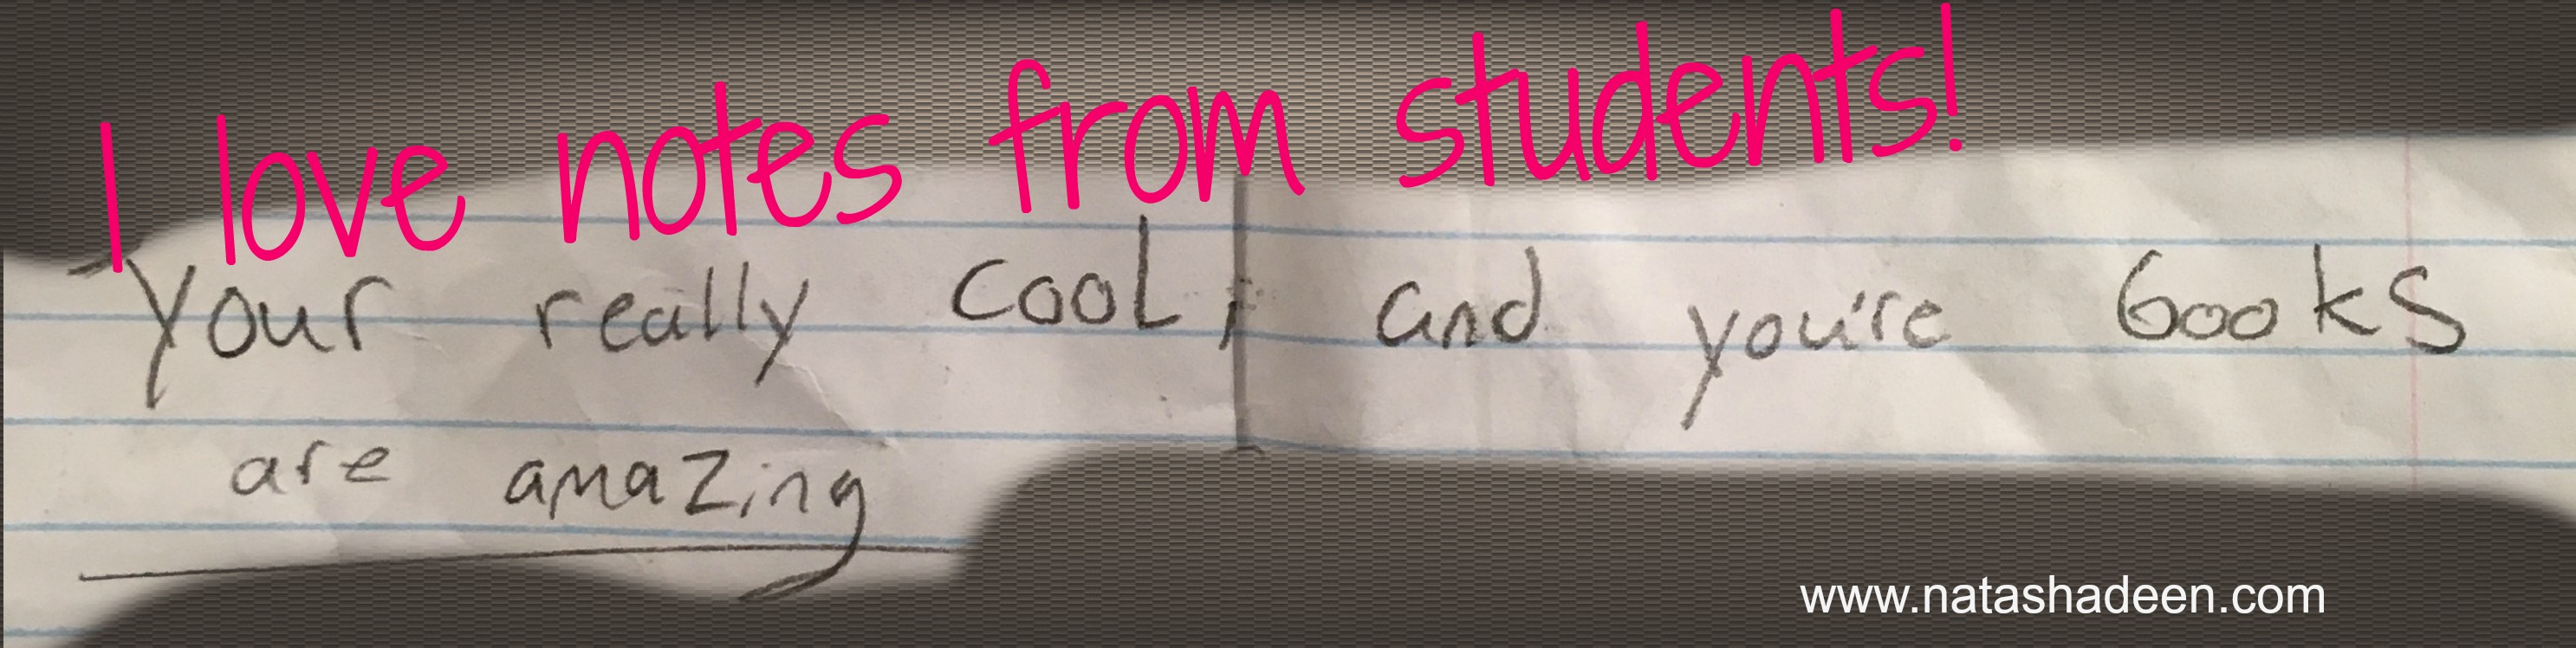 I love notes from students!
Your really cool, and you're books
are amazing
www.natashadeen.com